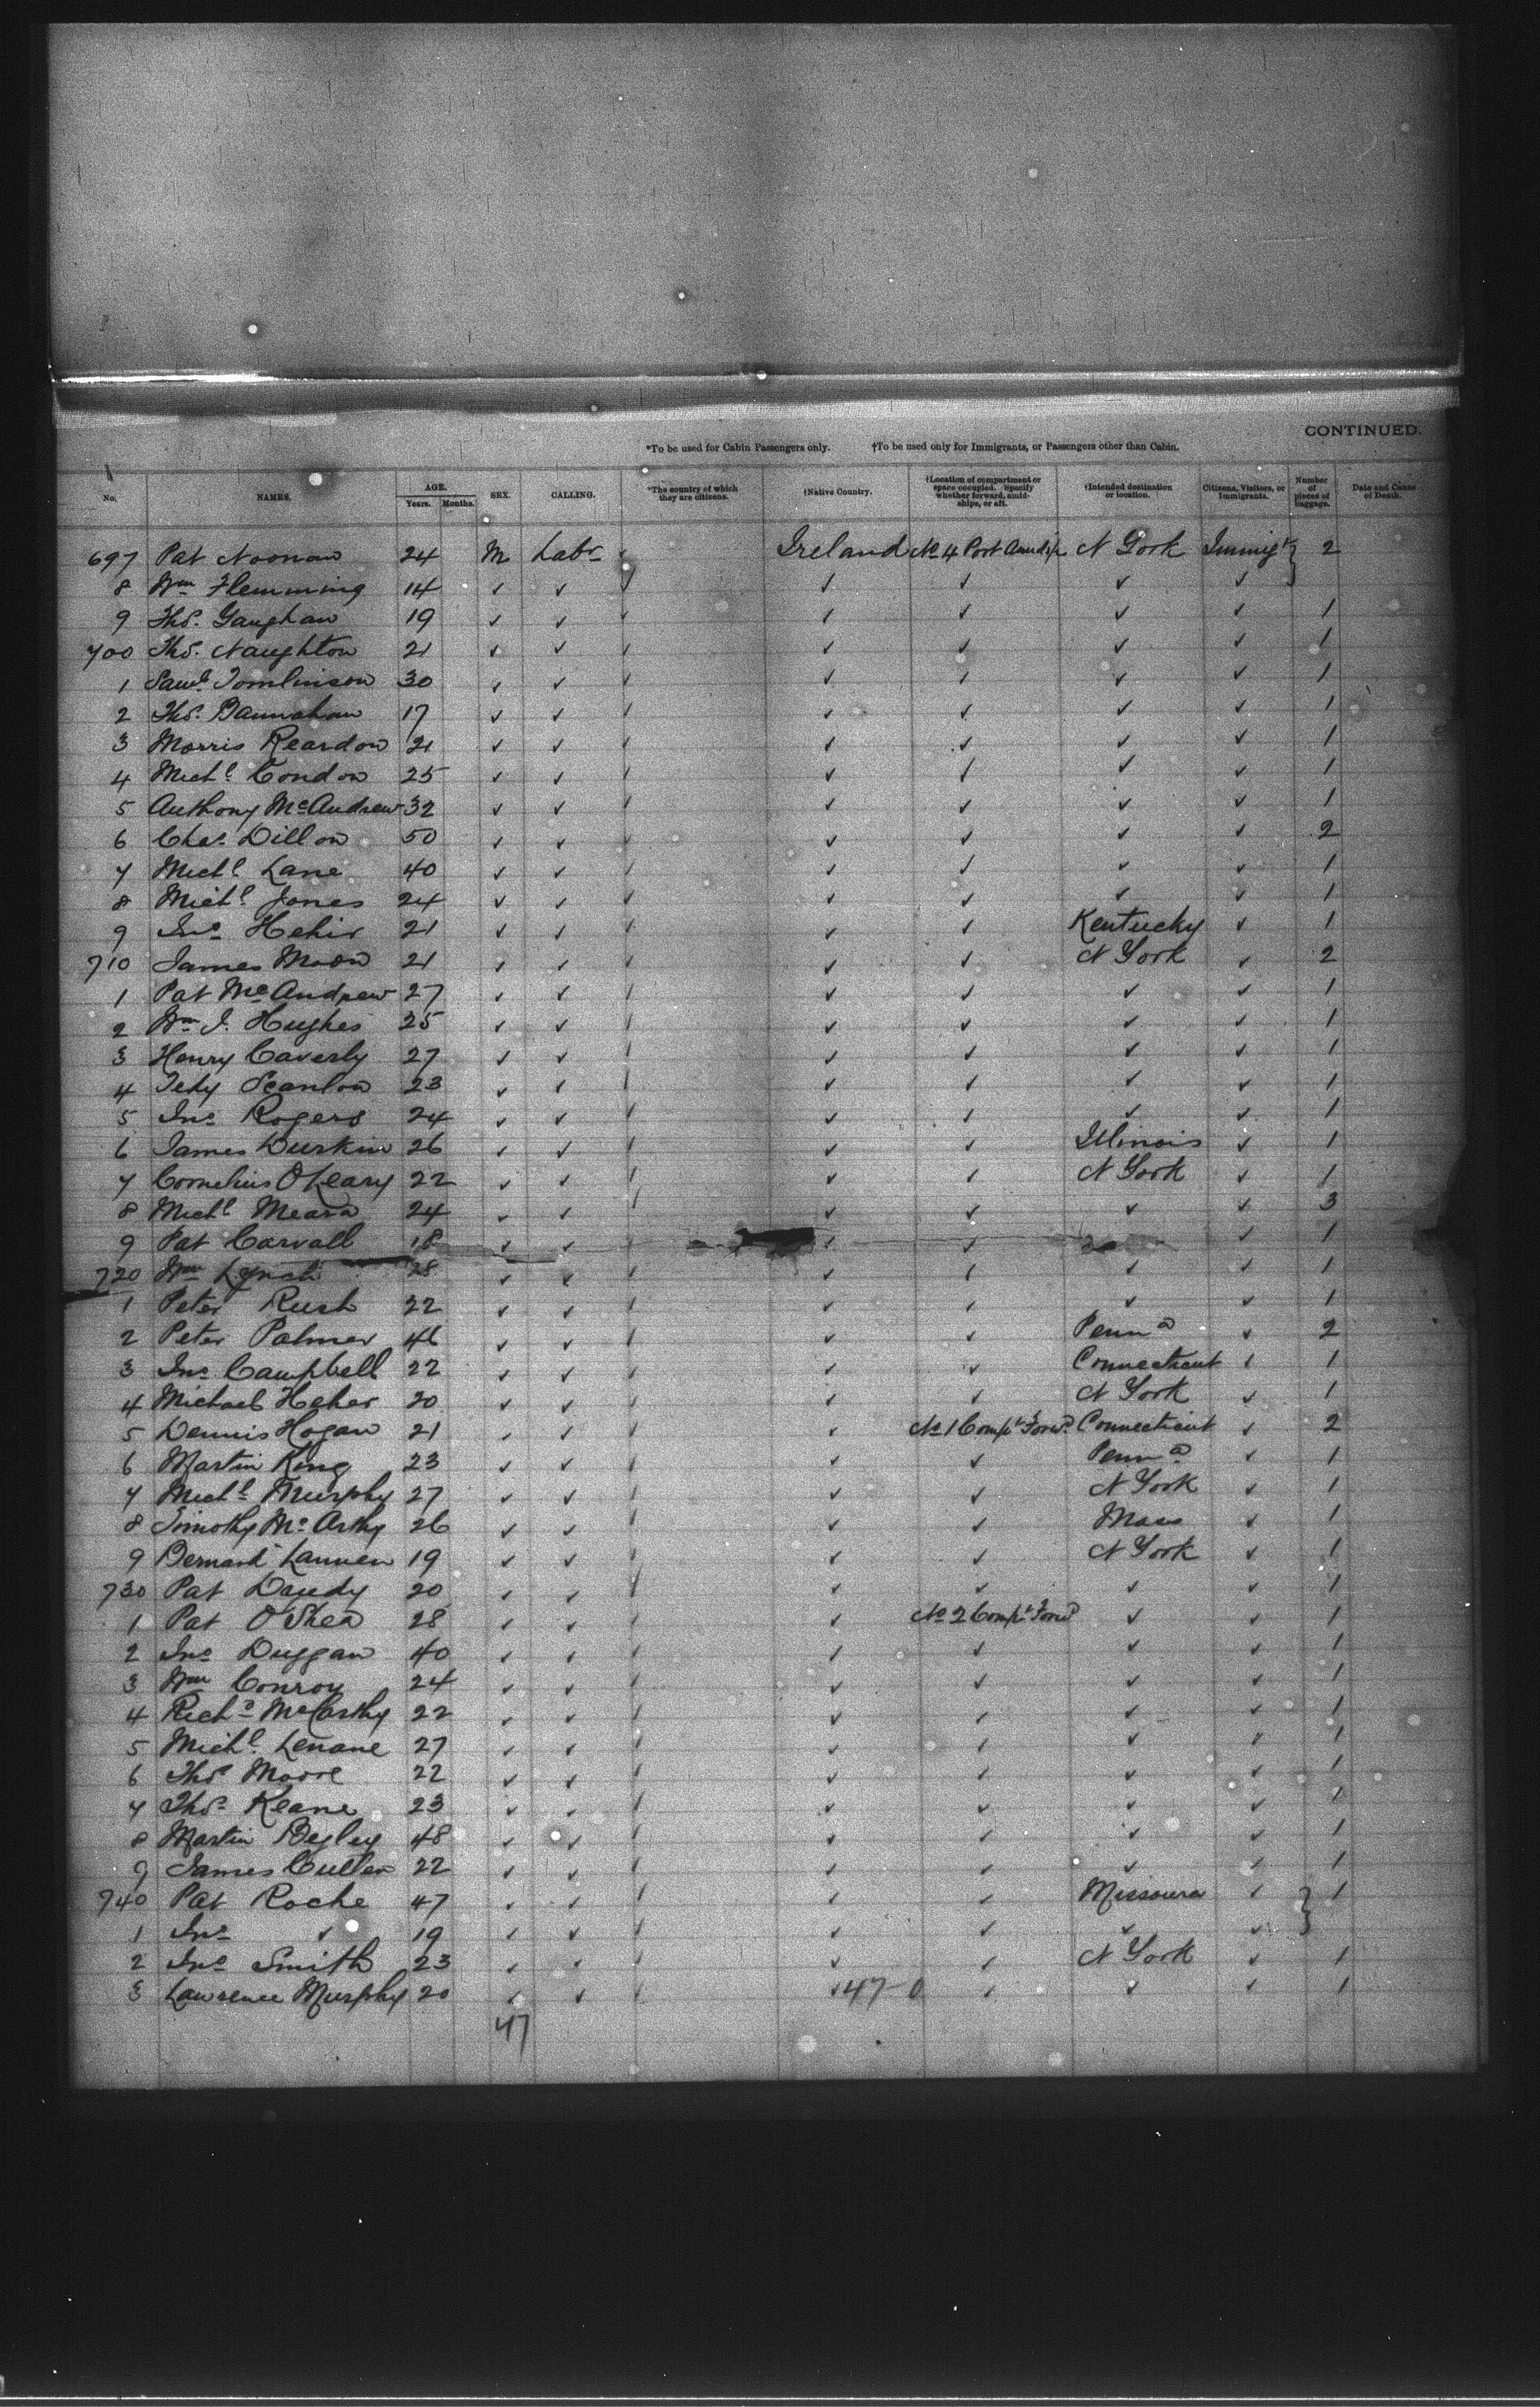 CONTINUED.
*To be used for Cabin Passengers only. †To be used only for Immigrants, or Passengers other than Cabin.
No. NAMES. AGE. Years. Months. SEX. CALLING. *The country of which they are citizens. †Native Country. †Location of compartment or space occupied. Specify whether forward, amidships, or aft. †Intended destination or location. Citizens, Visitors, or Immigrants. Number of pieces of baggage. Date and Cause of Death.
697 Pat Noonan 24 M Labr Ireland No 4 Port N York Immigt 2
8 Wm Flemming 14 ✓ ✓ ✓ ✓ ✓ ✓
9 Thos. Gaughan 19 ✓ ✓ ✓ ✓ ✓ ✓ 1
700 Thos. Naughton 21 ✓ ✓ ✓ ✓ ✓ ✓ 1
1 Saml. Tomlinson 30 ✓ ✓ ✓ ✓ ✓ ✓ 1
2 Thos. Bannahan 17 ✓ ✓ ✓ ✓ ✓ ✓ 1
3 Morris Reardon 21 ✓ ✓ ✓ ✓ ✓ ✓ 1
4 Michl. Condon 25 ✓ ✓ ✓ ✓ ✓ ✓ 1
5 Anthony McAndrew 32 ✓ ✓ ✓ ✓ ✓ ✓ 1
6 Chas. Dillon 50 ✓ ✓ ✓ ✓ ✓ ✓ 2
7 Michl. Lane 40 ✓ ✓ ✓ ✓ ✓ ✓ 1
8 Michl. Jones 24 ✓ ✓ ✓ ✓ ✓ ✓ 1
9 Jno. Hehir 21 ✓ ✓ ✓ ✓ Kentucky ✓ 1
710 James Moon 21 ✓ ✓ ✓ ✓ N York ✓ 2
1 Pat McAndrew 27 ✓ ✓ ✓ ✓ ✓ ✓ 1
2 Wm J. Hughes 25 ✓ ✓ ✓ ✓ ✓ ✓ 1
3 Henry Caverly 27 ✓ ✓ ✓ ✓ ✓ ✓ 1
4 Tedy Scanlon 23 ✓ ✓ ✓ ✓ ✓ ✓ 1
5 Jno. Rogers 24 ✓ ✓ ✓ ✓ ✓ ✓ 1
6 James Durkin 26 ✓ ✓ ✓ ✓ Illinois ✓ 1
7 Cornelius O'Leary 22 ✓ ✓ ✓ ✓ N York ✓ 1
8 Michl. Meara 24 ✓ ✓ ✓ ✓ ✓ ✓ 3
9 Pat Carvall 18 ✓ ✓ ✓ ✓ ✓ 1
720 Wm Lynch 28 ✓ ✓ ✓ ✓ ✓ ✓ 1
1 Peter Rush 22 ✓ ✓ ✓ ✓ ✓ ✓ 1
2 Peter Palmer 46 ✓ ✓ ✓ ✓ Penna ✓ 2
3 Jno. Campbell 22 ✓ ✓ ✓ ✓ Connecticut ✓ 1
4 Michael Heher 20 ✓ ✓ ✓ ✓ N York ✓ 1
5 Dennis Hogan 21 ✓ ✓ ✓ No 1 Compt Forwd Connecticut ✓ 2
6 Martin King 23 ✓ ✓ ✓ ✓ Penna ✓ 1
7 Michl. Murphy 27 ✓ ✓ ✓ ✓ N York ✓ 1
8 Timothy McArthy 26 ✓ ✓ ✓ ✓ Mass ✓ 1
9 Bernard Lannen 19 ✓ ✓ ✓ ✓ N York ✓ 1
730 Pat Dandy 20 ✓ ✓ ✓ ✓ ✓ ✓ 1
1 Pat O'Shea 28 ✓ ✓ ✓ No 2 Compt Forwd ✓ ✓ 1
2 Jno. Duggan 40 ✓ ✓ ✓ ✓ ✓ ✓ 1
3 Wm Conroy 24 ✓ ✓ ✓ ✓ ✓ ✓ 1
4 Richd. McCarthy 22 ✓ ✓ ✓ ✓ ✓ ✓ 1
5 Michl. Lenane 27 ✓ ✓ ✓ ✓ ✓ ✓ 1
6 Thos. Moore 22 ✓ ✓ ✓ ✓ ✓ ✓ 1
7 Thos. Keane 23 ✓ ✓ ✓ ✓ ✓ ✓ 1
8 Martin Begley 48 ✓ ✓ ✓ ✓ ✓ ✓ 1
9 James Cullen 22 ✓ ✓ ✓ ✓ ✓ ✓ 1
740 Pat Roche 47 ✓ ✓ ✓ ✓ Missoura ✓ 1
1 Jno. ✓ 19 ✓ ✓ ✓ ✓ ✓ ✓
2 Jno. Smith 23 ✓ ✓ ✓ ✓ N York ✓ 1
3 Lawrence Murphy 20 ✓ ✓ ✓ 47-0 ✓ ✓ ✓ 1
47